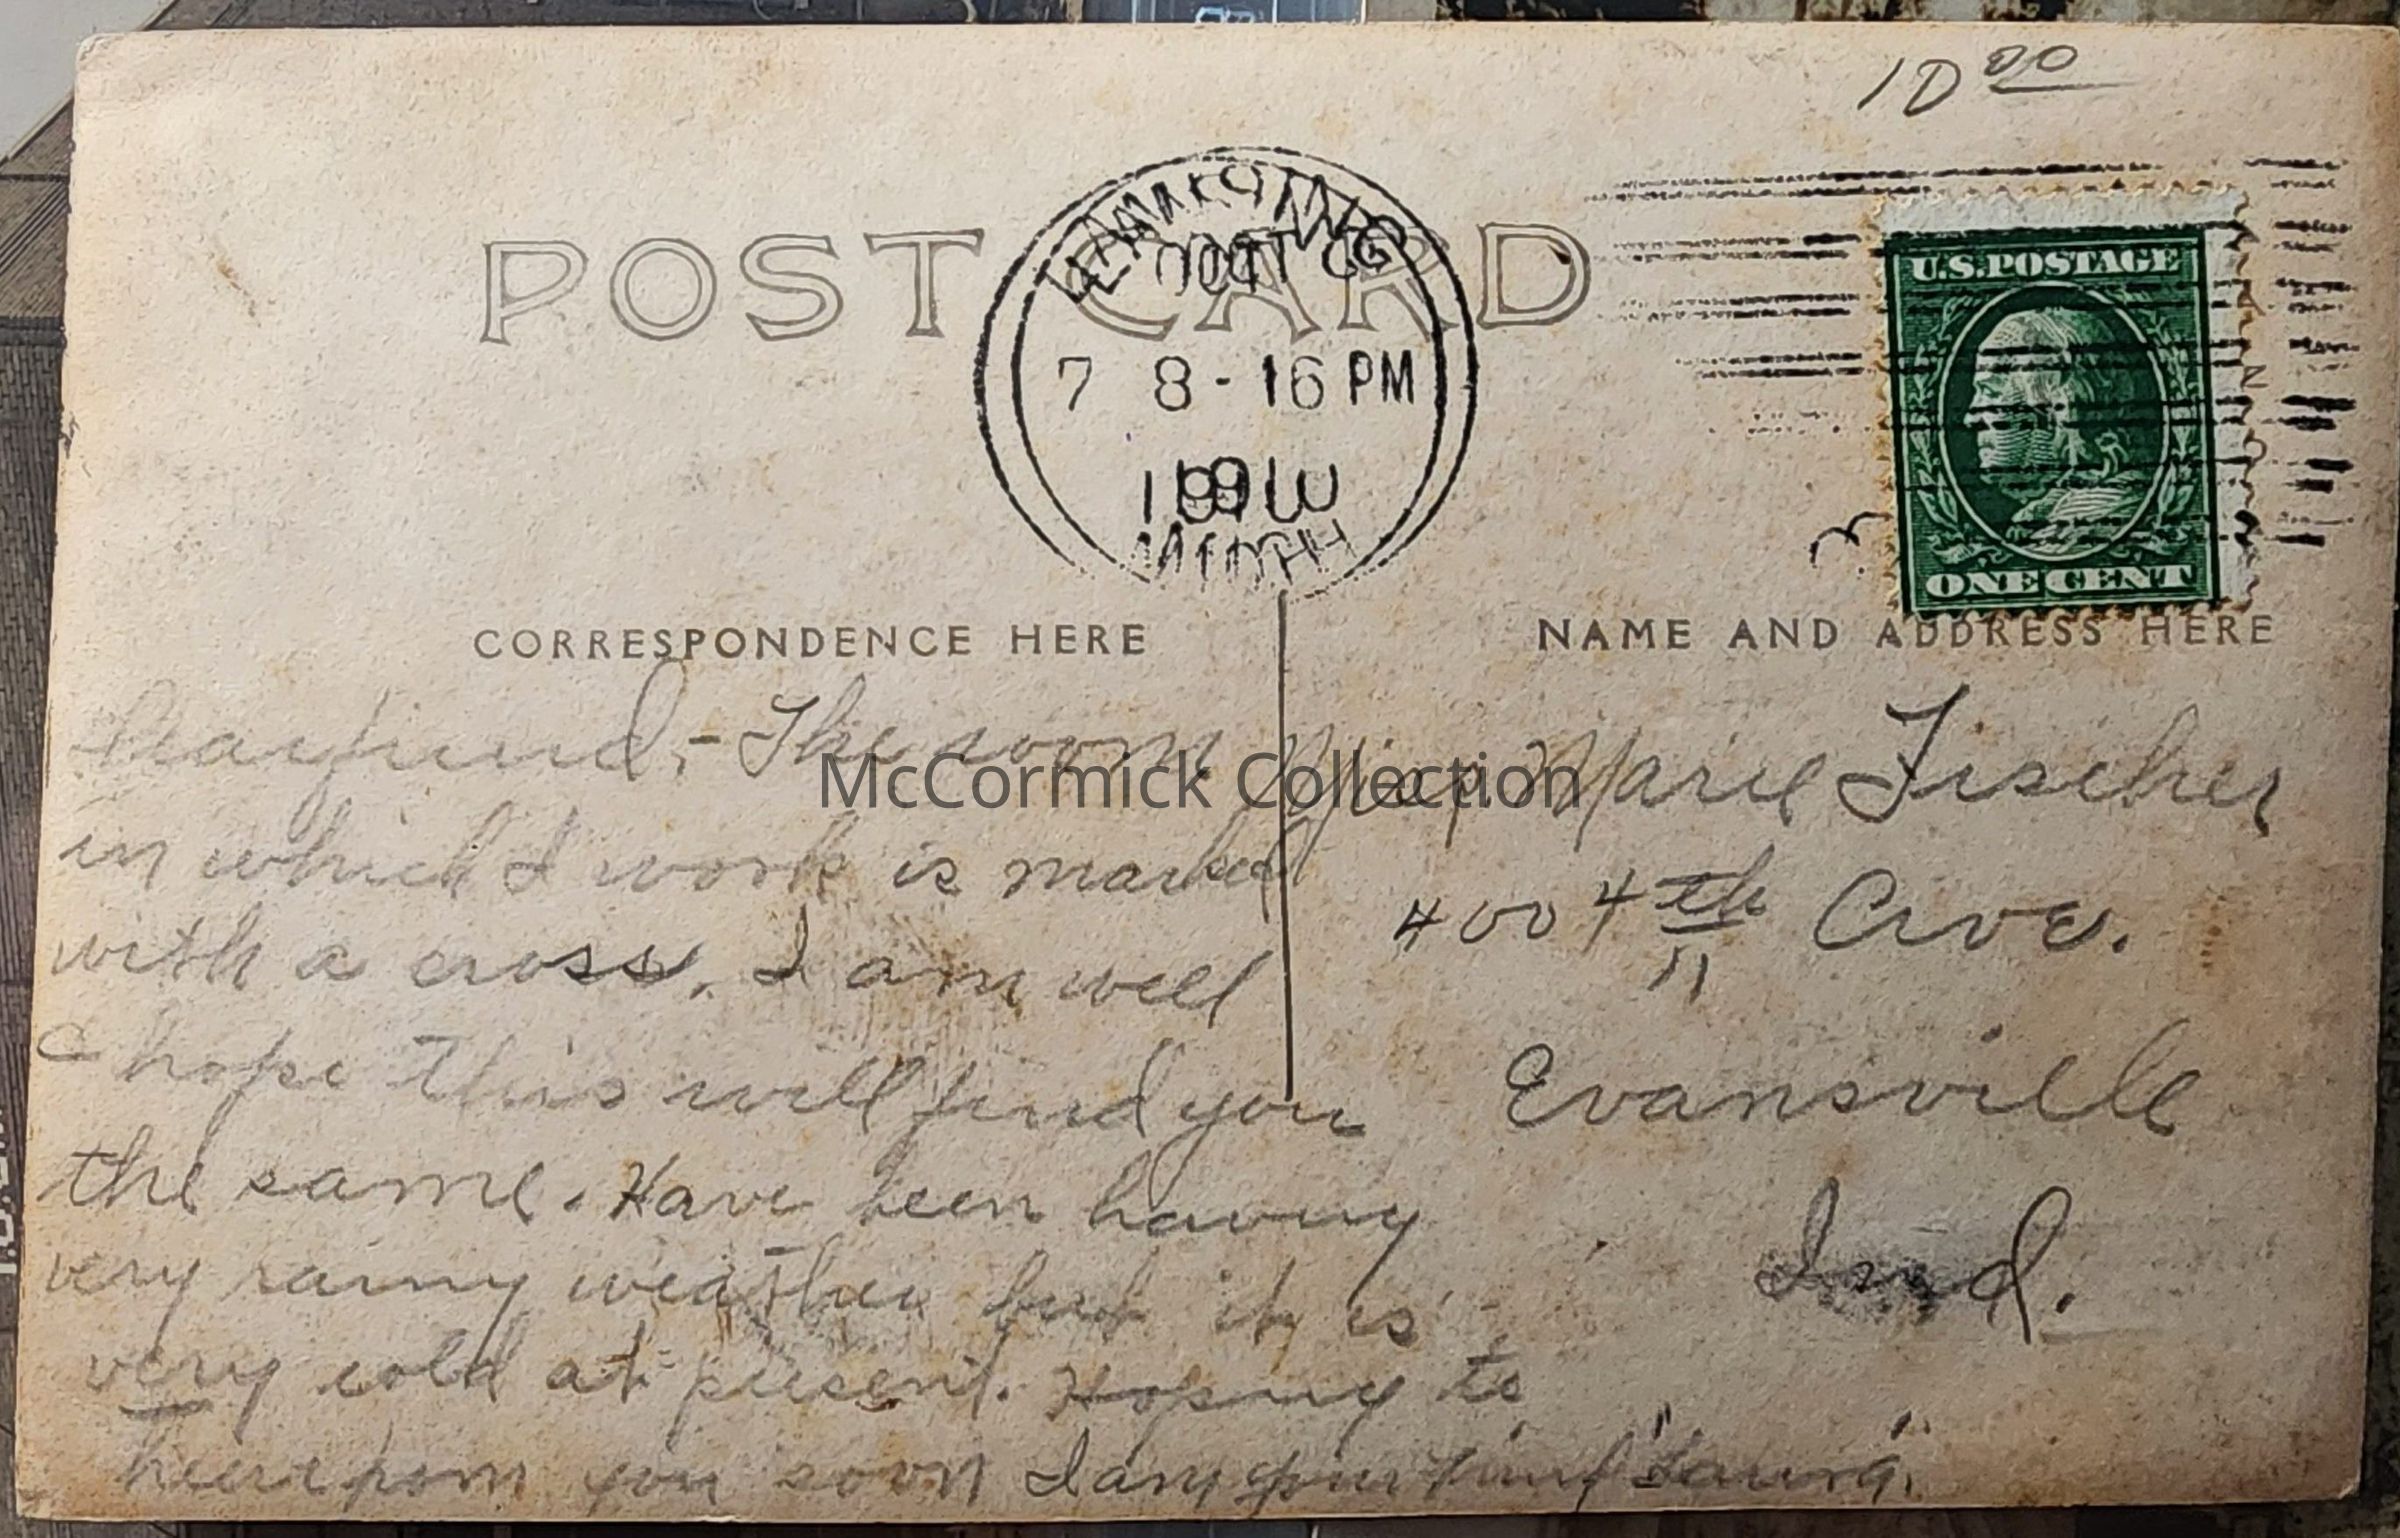 10 00
POST CARD
7 8-16 PM
U.S. POSTAGE
ONE CENT
CORRESPONDENCE HERE
NAME AND ADDRESS HERE
Dear friend,- The room
in which I work is marked
with a cross. I am well
& hope this will find you
the same. Have been having
very rainy weather but it is
very cold at present. Hoping to
hear from you soon I am your friend "Laura".
Miss Marie Fischer
400 4th Ave.
Evansville
Ind.
McCormick Collection